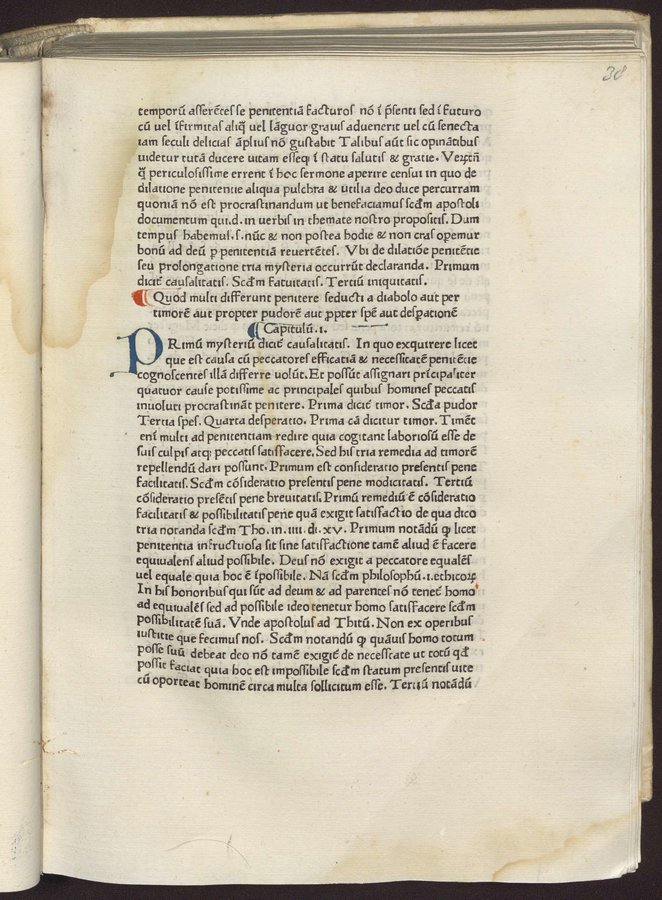 38
temporū asserētes se penitentiā facturos nō ī p̄senti sed ī futuro
cū vel īfirmitas aliq̄ vel lāguor grauis aduenerit vel cū senecta
iam seculi delicias āplius nō gustabit Talibus aūt sic opinātibus
uidetur tutā ducere uitam esseqȝ ī statu salutis & gratie. Veꝝtn̄
q̄ periculosissime errent ī hoc sermone aperire censui in quo de
dilatione penitentie aliqua pulchra & utilia deo duce percurram
quoniā nō est procrastinandum ut benefaciamus scd̄m apostoli
documentum qui.d. in uerbis in themate nostro propositis. Dum
tempus habemus.s. nūc & non postea hodie & non cras operemur
bonū ad deū ꝑ penitentiā reuertētes. Vbi de dilatiōe penitētie
seu prolongatione tria mysteria occurrūt declaranda. Primum
dicit̄ causalitatis. Scd̄m fatuitatis. Tertiū iniquitatis.
¶ Quod multi differunt penitere seducti a diabolo aut per
timorē aut propter pudorē aut ꝓpter spē aut desꝑationē
¶ Capitulū .i.
PRimū mysteriū dicit̄ causalitatis. In quo exquirere licet
que est causa cū peccatores efficatiā & necessitatē penitētie
cognoscentes illā differre uolūt. Et possūt assignari prīcipaliter
quatuor cause potissime ac principales quibus homines peccatis
inuoluti procrastināt penitere. Prima dicit̄ timor. Scd̄a pudor
Tertia spes. Quarta desperatio. Prima cā dicitur timor. Timēt
enī multi ad penitentiam redire quia cogitant laboriosū esse de
suis culpis atqȝ peccatis satisfacere. Sed his tria remedia ad timorē
repellendū dari possunt. Primum est consideratio presentis pene
facilitatis. Scd̄m cōsideratio presentis pene modicitatis. Tertiū
cōsideratio presētis pene breuitatis. Primū remediū ē cōsideratio
facilitatis & possibilitatis pene quā exigit satisfactio de qua dico
tria notanda scd̄m Tho. in. iiii. di. xv. Primum notādū ꝙ licet
penitentia infructuosa sit sine satisfactione tamē aliud ē facere
equiualens aliud possibile. Deus nō exigit a peccatore equalēs
uel equale quia hoc ē īpossibile. Nā scd̄m philosophū .i. ethicoꝝ
In his honoribus qui sūt ad deum & ad parentes nō tenet̄ homo
ad equiualēs sed ad possibile ideo tenetur homo satisfacere scd̄m
possibilitatē suā. Vnde apostolus ad Thitū. Non ex operibus
iustitie que fecimus nos. Scd̄m notandū ꝙ quāuis homo totum
posse suū debeat deo nō tamē exigit̄ de necessitate ut totū qd̄
possit faciat quia hoc est impossibile scd̄m statum presentis uite
cū oporteat hominē circa multa sollicitum esse. Tertiū notādū